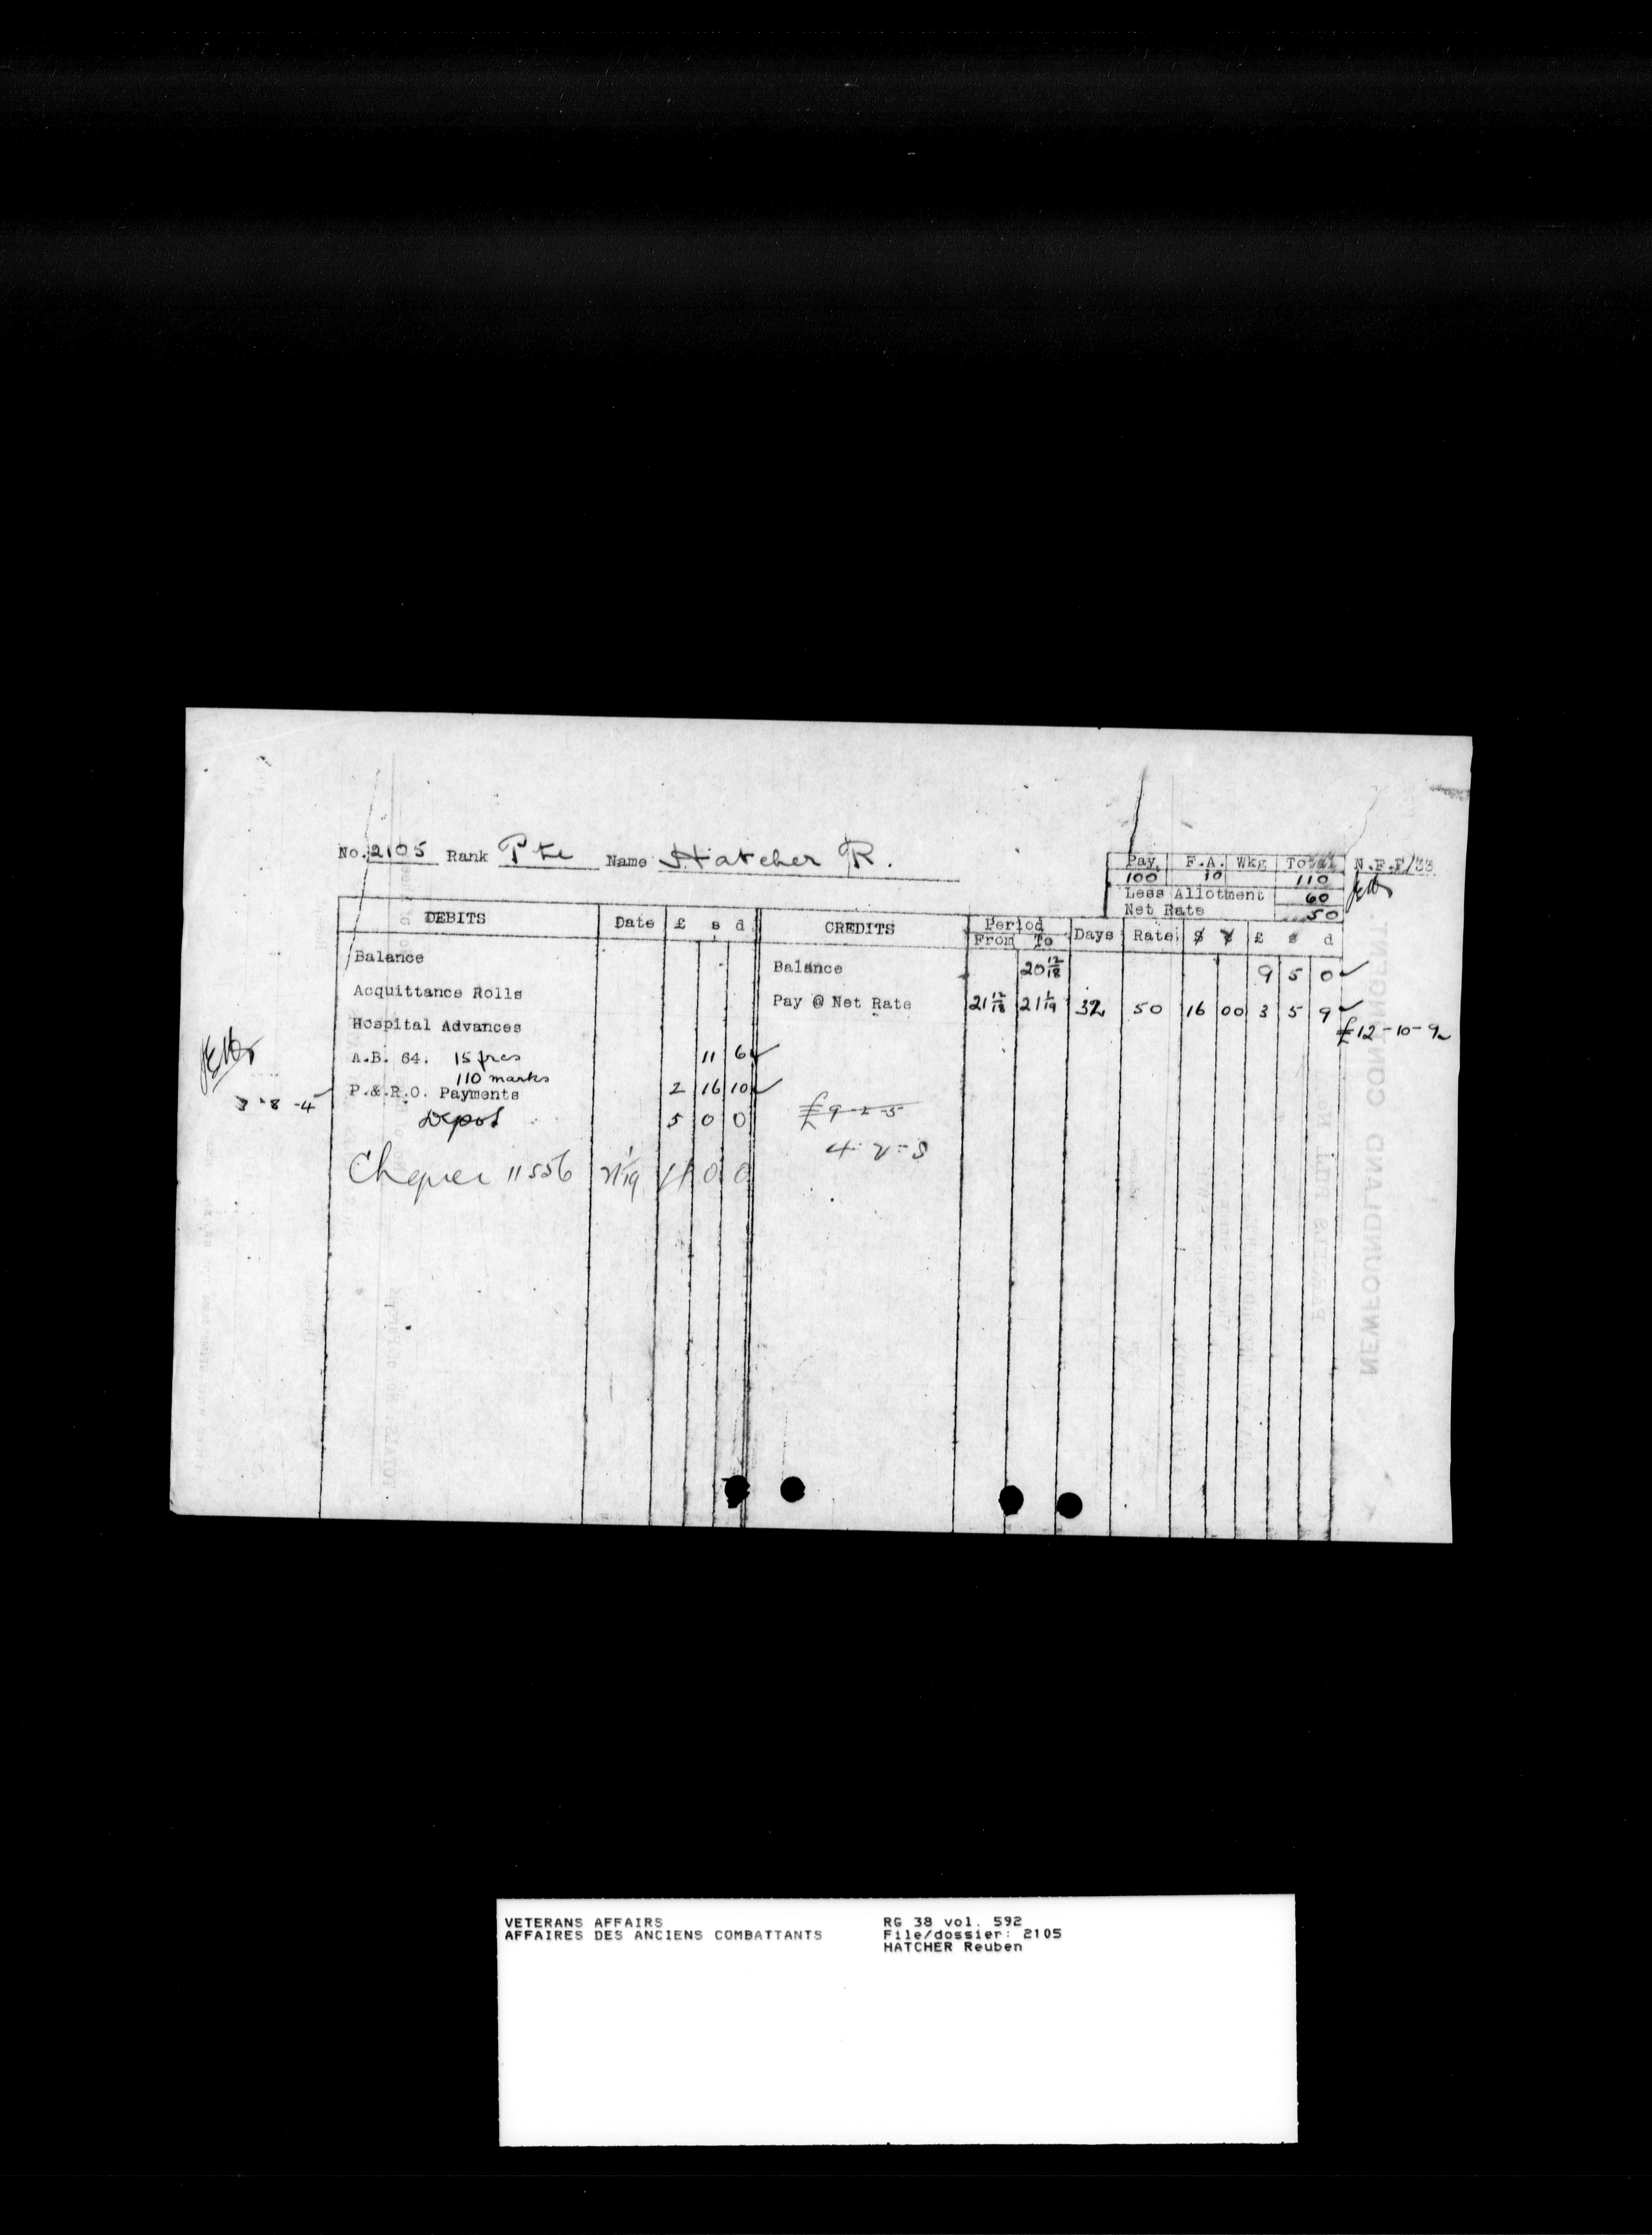 No. 2105 Rank Pte Name Hatcher R.
Pay F.A. Wkg Total N.F.F/33
100 10 110
Less Allotment 60
Net Rate 50
DEBITS Date £ s d CREDITS Period From To Days Rate $ ¢ £ s d
Balance Balance 20 12/18 9 5 0
Acquittance Rolls Pay @ Net Rate 21 12/18 21 1/19 32 50 16 00 3 5 9
£12-10-9
Hospital Advances
A.B. 64. 15 frcs 11 6
110 marks
P.&.R.O. Payments 2 16 10
3-8-4
Depot 5 0 0
£9-2-5
4-2-5
Cheque 11556 21 1/19 4 0 0
NEWFOUNDLAND CONTINGENT
VETERANS AFFAIRS
AFFAIRES DES ANCIENS COMBATTANTS
RG 38 vol. 592
File/dossier: 2105
HATCHER Reuben